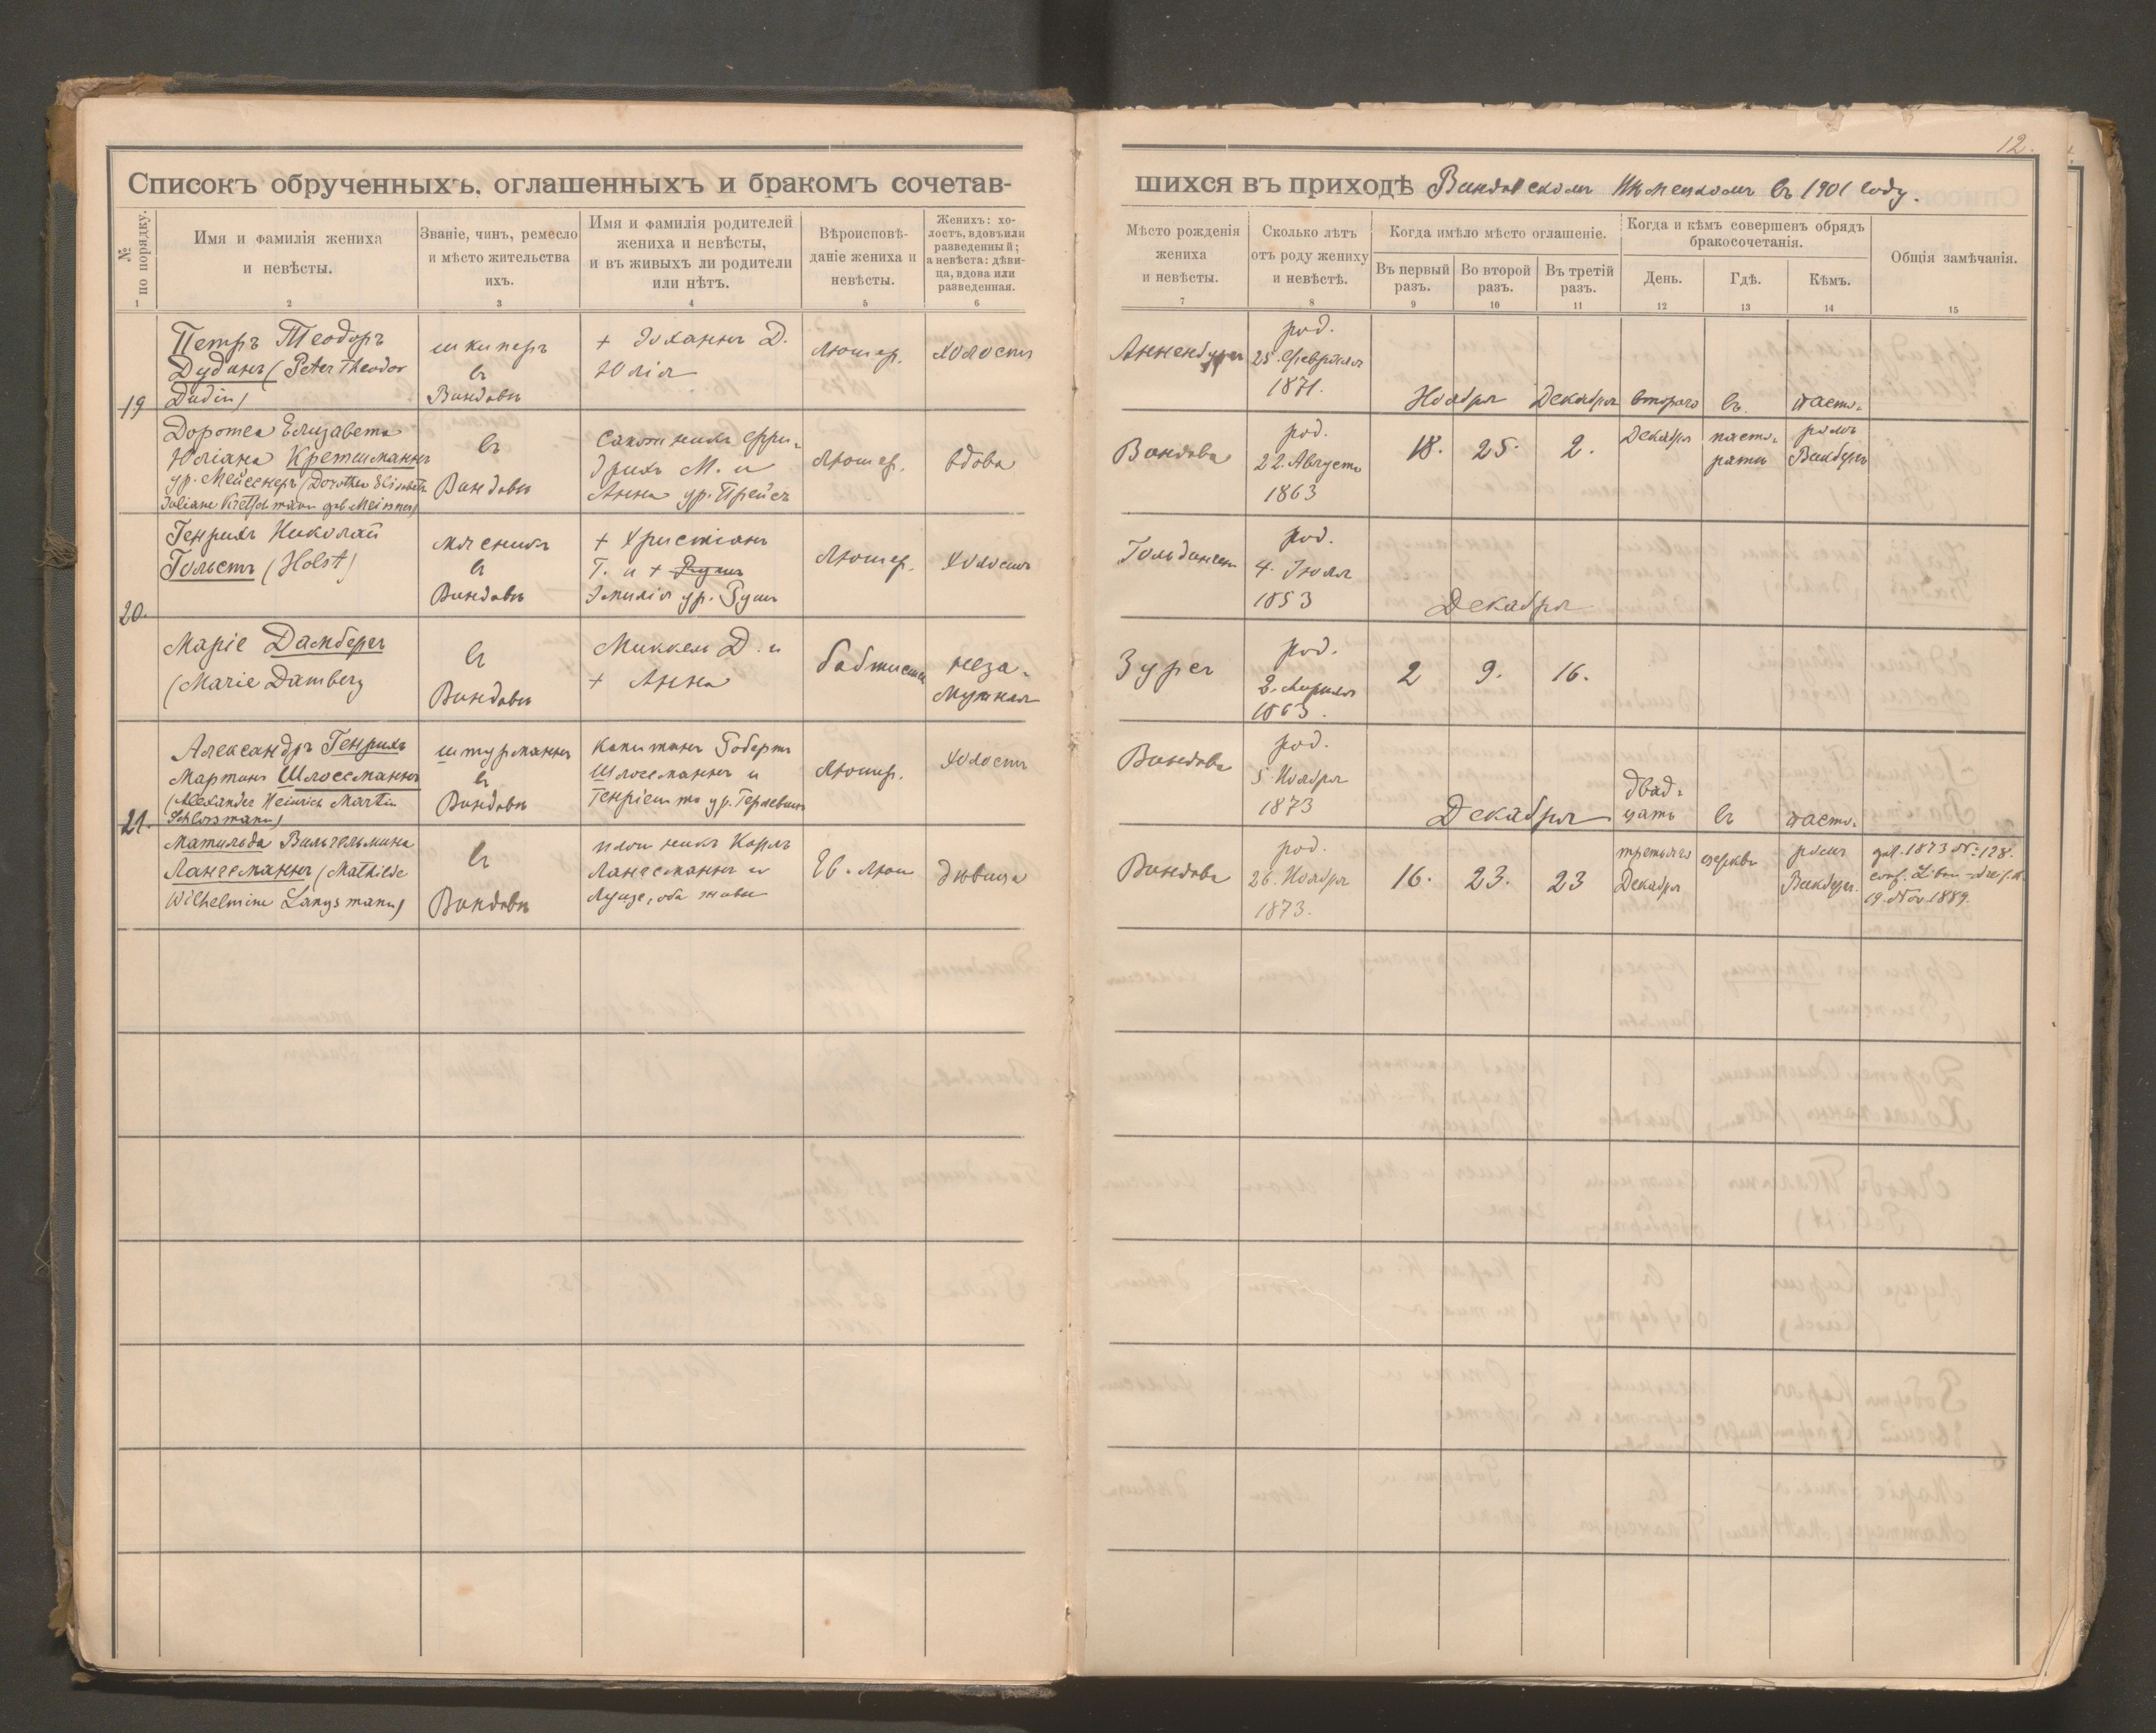 12.
Списокъ обрученныхъ, оглашенныхъ и бракомъ сочетав-
шихся въ приходѣ Виндавскомъ Нѣмецкомъ въ 1901 году.
№ по порядку.
Имя и фамилія жениха
и невѣсты.
Званіе, чинъ, ремесло
и мѣсто жительства
ихъ.
Имя и фамилія родителей
жениха и невѣсты,
и въ живыхъ ли родители
или нѣтъ.
Вѣроисповѣ-
даніе жениха и
невѣсты.
Женихъ: хо-
лостъ, вдовъ или
разведенный;
а невѣста: дѣви-
ца, вдова или
разведенная.
Мѣсто рожденія
жениха
и невѣсты.
Сколько лѣтъ
отъ роду жениху
и невѣстѣ.
Когда имѣло мѣсто оглашеніе.
Въ первый
разъ.
Во второй
разъ.
Въ третій
разъ.
Когда и кѣмъ совершенъ обрядъ
бракосочетанія.
День.
Гдѣ.
Кѣмъ.
Общія замѣчанія.
1 2 3 4 5 6 7 8 9 10 11 12 13 14 15
19
Петръ Теодоръ
Дудинъ (Peter Theodor
Dudin)
шкиперъ
въ
Виндавѣ
+ Іоханнъ Д.
Юлія
Лютер.
холостъ
Анненбургъ
род.
25. Февраля
1871.
Ноября
Декабря
второго
въ
пасто-
Доротеа Елизавета
Юліана Кретшманнъ
ур. Мейсснеръ (Dorothea Elisabeth
Juliane Kretschmann geb. Meissner)
въ
Виндавѣ
сапожникъ Фри-
дрихъ М. и
Анна ур. Прейсъ
Лютер.
вдова
Виндава
род.
22. Августа
1863
18.
25.
2.
Декабря
пасто-
ратѣ
ромъ
20.
Генрихъ Николай
Гольстъ (Holst)
мясникъ
въ
Виндавѣ
+ Христіанъ
Г. и +
Эмилія ур.
Лютер.
холостъ
Гольдингенъ
род.
4. Іюля
1853
Декабря
Маріе Дамбергъ
(Marie Damberg
въ
Виндавѣ
Миккель Д. и
+ Анна
баптистка
неза-
мужняя
Зурсъ
род.
2. Апрѣля
1863.
2
9.
16.
21.
Александръ Генрихъ
Мартинъ Шлоссманнъ
(Alexander Heinrich Martin
Schlossmann)
штурманнъ
въ
Виндавѣ
Капитанъ Робертъ
Шлоссманнъ и
Генріетта ур.
Лютер.
холостъ
Виндава
род.
5. Ноября
1873
Декабря
двад-
цать
въ
пасто-
Матильда Вильгельмина
Лангсманнъ (Mathilde
Wilhelmine Langsmann)
въ
Виндавѣ
плотникъ Карлъ
Лангсманнъ и
Луизе, оба живы
Ев. Лют
дѣвица
Виндава
род.
26. Ноября
1873.
16.
23.
23
третьяго
Декабря
церкви
ромъ
geb. 1873 № 128.
conf. Libau
19. Nov. 1889.